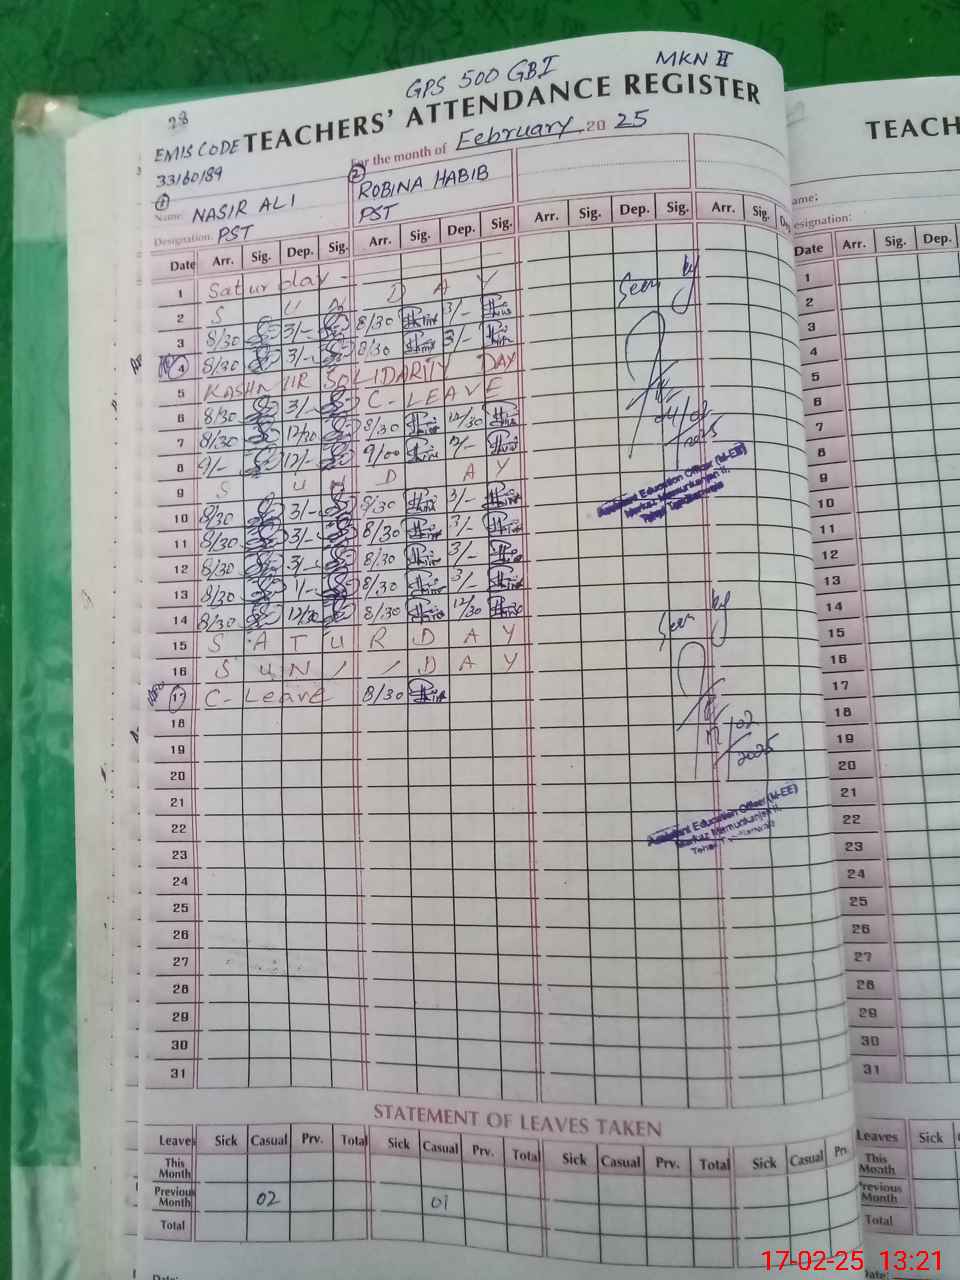 28
GPS 500 GBI MKN II
TEACHERS' ATTENDANCE REGISTER
EMIS CODE
33160189
For the month of February 2025
① ②
Name: NASIR ALI ROBINA HABIB
Designation: PST PST
Date Arr. Sig. Dep. Sig. Arr. Sig. Dep. Sig. Arr. Sig. Dep. Sig. Arr. Sig. Dep.
1 Saturday -
2 S U N D A Y
3 8/30 3/- 8/30 3/-
4 8/30 3/- 8/30 3/-
5 KASHMIR SOLIDARITY DAY
6 8/30 3/- C-LEAVE
7 8/30 12/30 8/30 12/30
8 9/- 12/- 9/00 12/-
9 S U N D A Y
10 8/30 3/- 8/30 3/-
11 8/30 3/- 8/30 3/-
12 8/30 3/- 8/30 3/-
13 8/30 1/- 8/30 3/-
14 8/30 12/30 8/30 12/30
15 S A T U R D A Y
16 S U N / / D A Y
17 C-Leave 8/30
18
19
20
21
22
23
24
25
26
27
28
29
30
31
Seen by
04/02
2025
Assistant Education Officer (M-EE)
Markaz Mamunkanjan II,
Seen by
17/02
2025
Assistant Education Officer (M-EE)
Markaz Mamunkanjan II,
STATEMENT OF LEAVES TAKEN
Leaves Sick Casual Prv. Total Sick Casual Prv. Total Sick Casual Prv. Total Sick Casual Prv.
This Month
Previous Month 02 01
Total
Date:
TEACH
ame:
esignation:
Date Arr. Sig. Dep.
1
2
3
4
5
6
7
8
9
10
11
12
13
14
15
16
17
18
19
20
21
22
23
24
25
26
27
28
29
30
31
Leaves Sick
This Month
Previous Month
Total
Date:
17-02-25 13:21